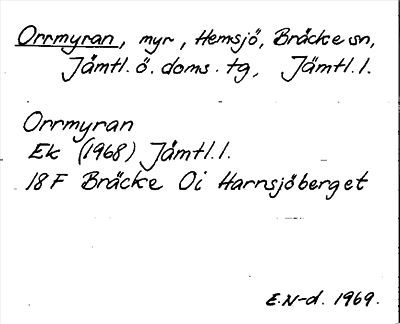 Orrmyran, myr, Hemsjö, Bräcke sn,
Jämtl. ö. doms. tg, Jämtl. l.
Orrmyran
Ek (1968) Jämtl. l.
18 F Bräcke 0i Harnsjöberget
E.N-d. 1969.